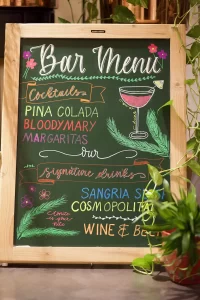 Bar Menu
Cocktails
PINA COLADA
BLOODYMARY
MARGARITAS
our
signature drinks
SANGRIA
COSMOPOLITA
WINE &